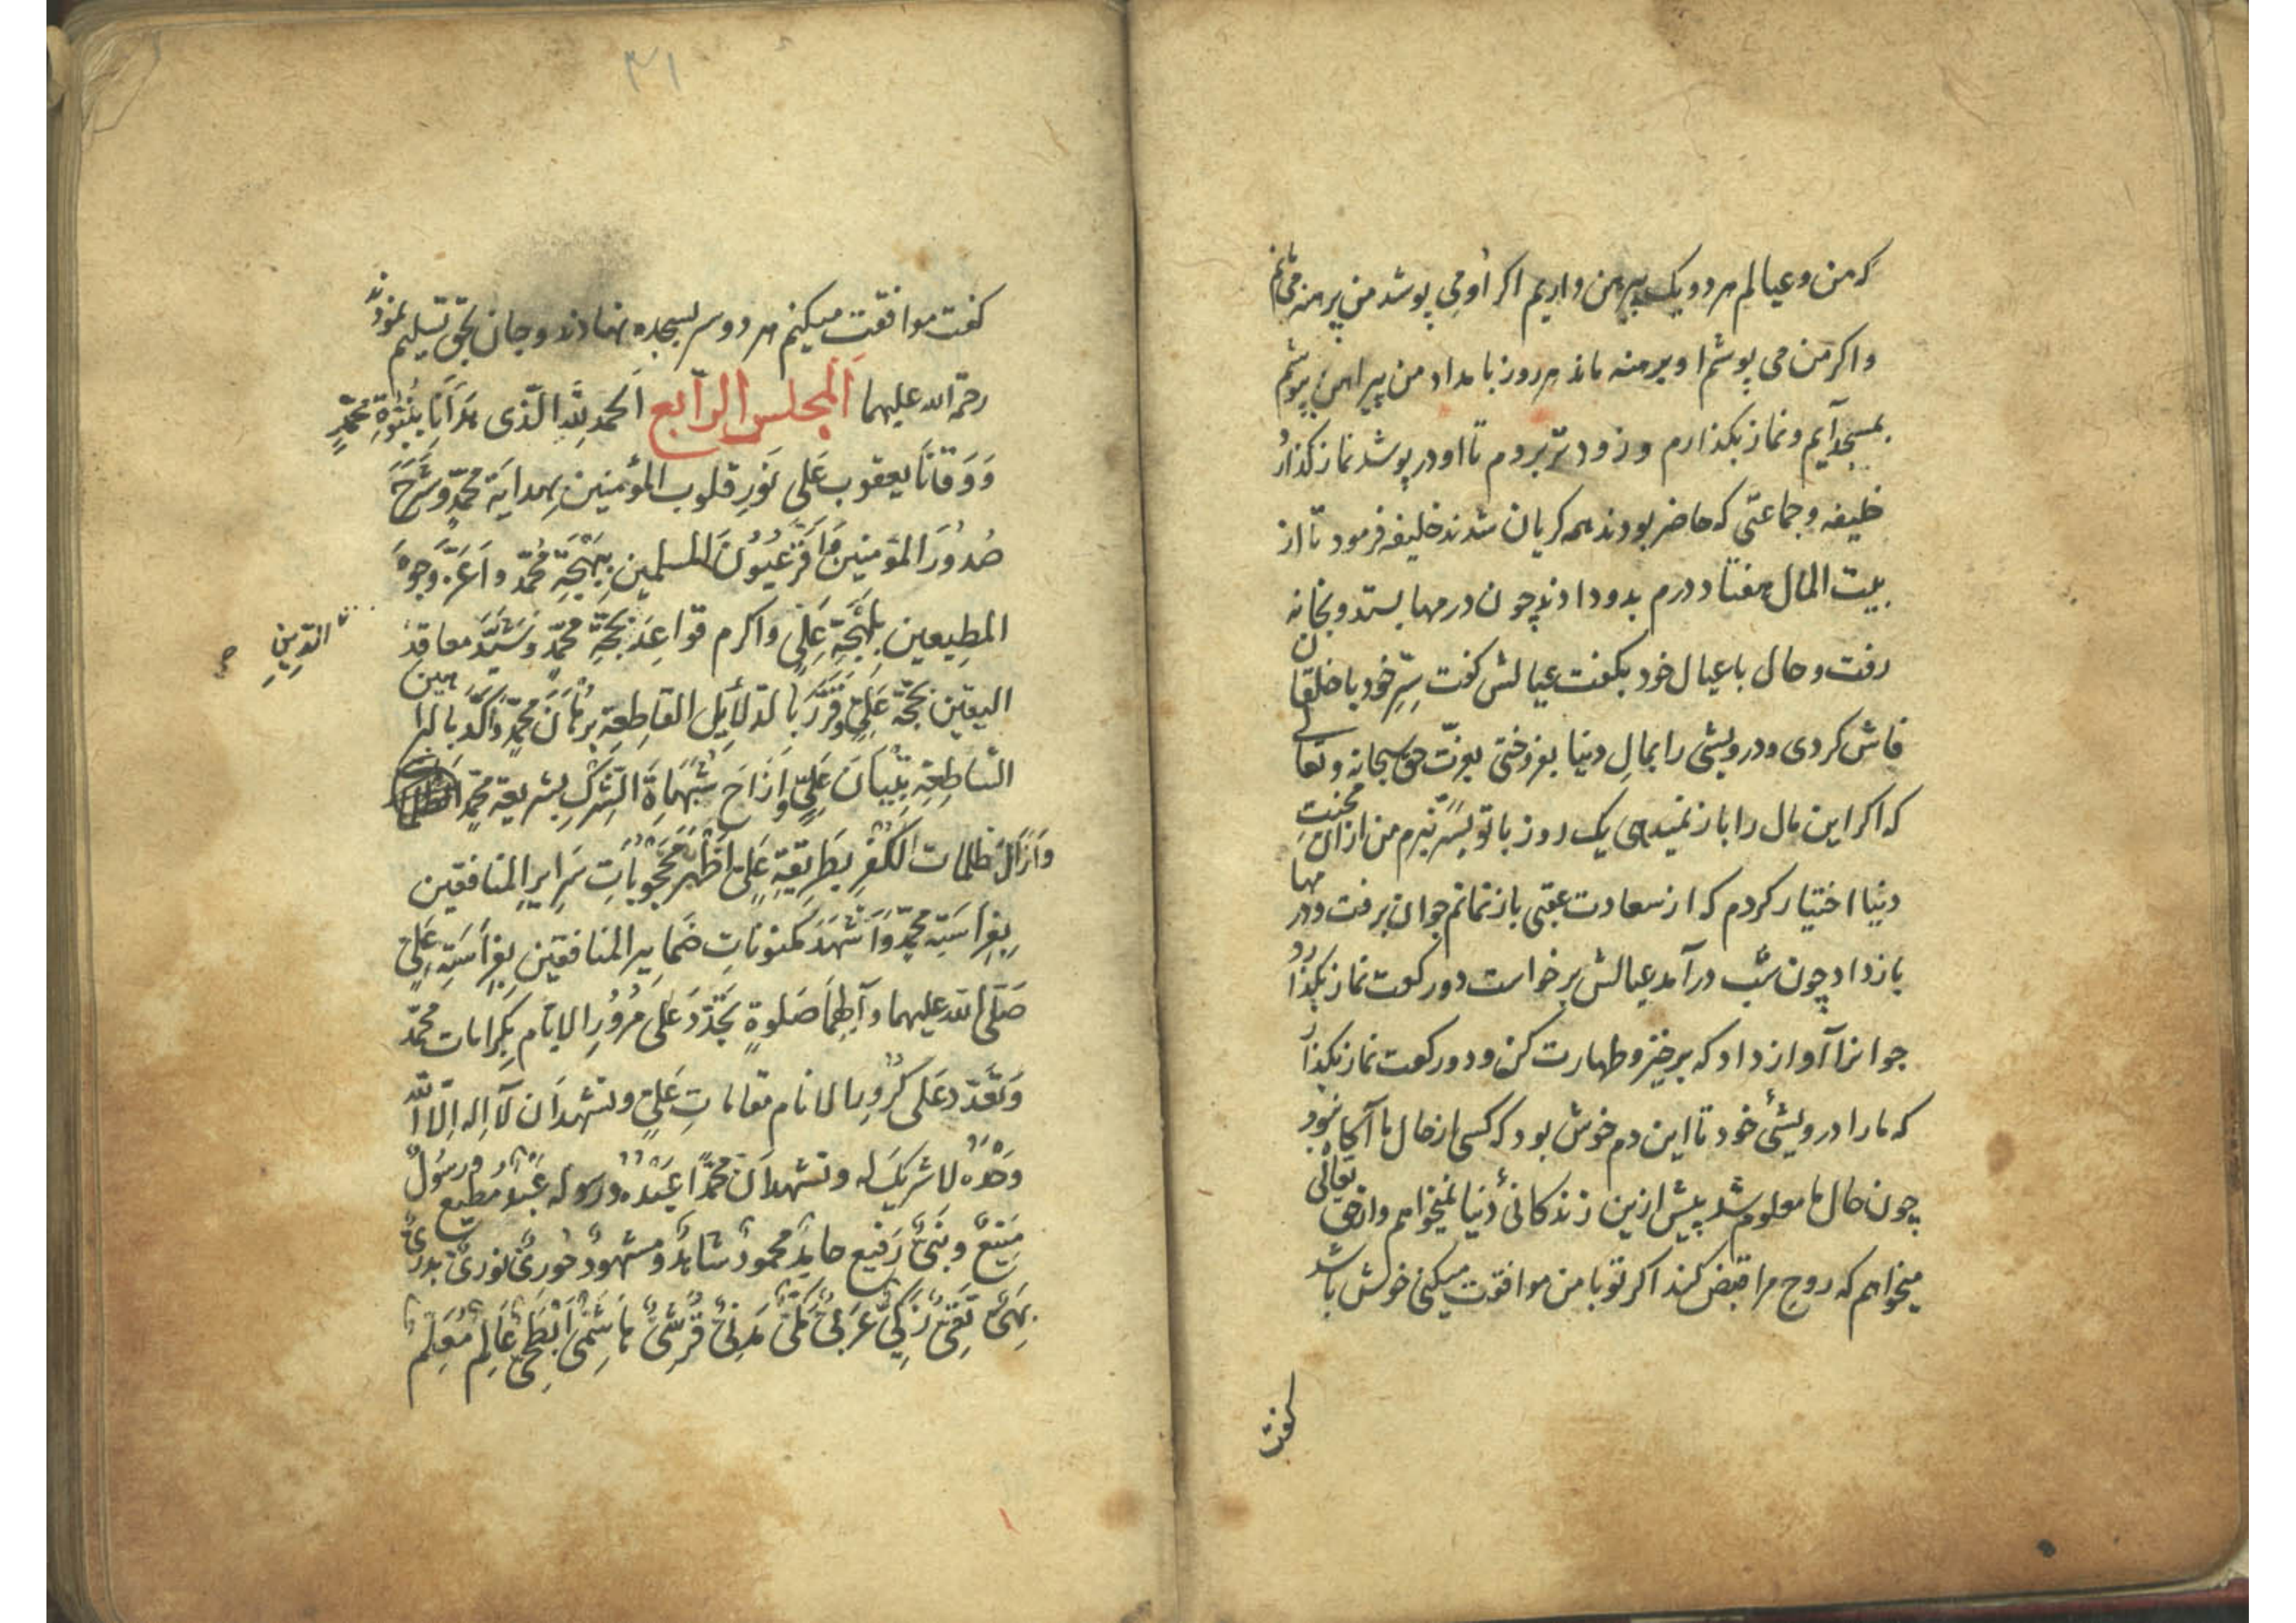 که من و عیالم هر دو یک پیرهن داریم اکر او می پوشد من برهنه می مانم
و اکر من می پوشم او برهنه ماند هر روز بامداد من پیراهن بپوشم
بمسجد آیم و نماز بکذارم و زودتر بروم تا او در پوشد نماز کذارد
خلیفه و جماعتی که حاضر بودند همه کریان شدند خلیفه فرمود تا از
بیت المال هفتاد درم بدو دادند چون درمها بستد و بخانه
رفت و حال با عیال خود بکفت عیالش کفت سِرّ خود با خلقان
فاش کردی و درویشی را بمالِ دنیا بفروختی بعزّت حق سبحانه و تعالی
که اکر این مال را باز نمیدهی یک روز با تو بسر نبرم من از آن محنتِ
دنیا اختیار کردم که از سعادت عقبی باز نمانم جوان برفت و درمها
باز داد چون شب درآمد عیالش برخواست دو رکعت نماز بکذارد
جوانرا آواز داد که برخیز و طهارت کن و دو رکعت نماز بکذار
که ما را درویشیٔ خود تا این دم خوش بود که کسی از حال ما آکاه نبود
چون حال ما معلوم شد پیش ازین زندکانیٔ دنیا نمیخواهم و از حق تعالی
میخواهم که روح مرا قبض کند اکر تو با من موافقت میکنی خوش باشد
کفت
۳۱
کفت موافقت میکنم هر دو سر بسجده نهادند و جان بحق تسلیم نمودند
رحمة الله علیهما اَلمجلس الرّابع اَلحمد لِلّهِ الّذی هَدَانَا بِنُبُوّةِ محمّدٍ
وَ وَقانَا بعقوب عَلی نَوّرِ قلوب المؤمنین بِهدایَة محمّدٍ و شَرَحَ
صُدُورَ المؤمنین وَ اَقَرَّ عُیُونَ المسلمین بِبَهْجَةِ محمّد و اَعَزَّ وُجوهَ
المطِیعین بِلَهْجَةِ عَلِی وَ اکرم قَواعِدَ بحجّةِ محمّدٍ وَ شَیّدَ معاقِدَ
الدّینِ
الیقین بحجّة عَلِیٍّ وَ قَرَّرَ بالدّلَایِلِ القاطِعَةِ بُرْهَانَ محمّدٍ وَ اَکّدَ بالبراهین
السّاطِعَةِ تِبْیَانَ عَلِیٍّ وَ اَزَاحَ شُبُهَاةَ الشِّرْکِ بشریعة محمّدٍ
وَ اَزَالَ ظلمات الکُفْرِ بطَرِیقَةِ عَلیٍّ اَظْهَرَ مَحْجُوبَاتِ سَرایرِ المنافقین
بِفِرَاسَتِه محمّدٍ وَ اَشْهَدَ مکنوناتِ ضَمایر المنافقین بِفِراسَتِه عَلیٍّ
صَلّی الله علیهما و آلِهِمَا صَلوةٍ تجَدَّدَ عَلی مُرُورِ الایّام بِکرامات محمّد
وَ تَعَدّد عَلی کُرُورِ الانام مقاماتِ عَلیٍّ و نشهد ان لآ اِله اِلّا اللّه
وَحْدَهُ لا شریکَ له و نشهد اَنّ محمّدًا عَبْدُهُ و رسوله عَبْدٌ مُطیعٌ وَ رسُولٌ
مَنِیعٌ و نَبیٌّ رَفیع حامِدٌ محمودٌ شاهِدٌ و مشهودٌ نوریٌّ بدریٌّ
بَهیٌّ تَقیٌّ زَکیٌّ عَرَبیٌّ مَکّیٌّ مَدَنیٌّ قُرَشیٌّ هَاشِمیٌّ اَبْطَحیٌّ عَالِمٌ مُعَلِّمٌ